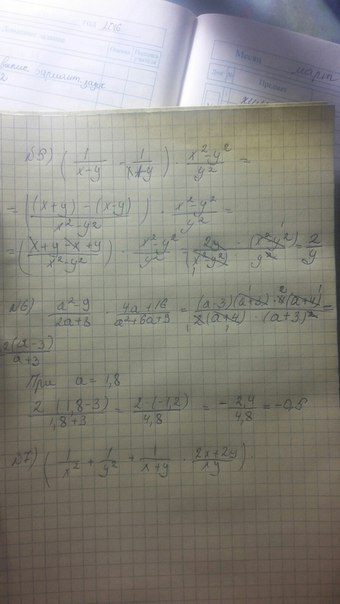 год 2016
вариант
Месяц март
Предмет
№5) (1/(x-y) - 1/(x+y)) · (x²-y²)/y² =
= (((x+y) - (x-y))/(x²-y²)) · (x²-y²)/y² =
= ((x+y-x+y)/(x²-y²)) · (x²-y²)/y² = (2y/(x²-y²)) · (x²-y²)/y² = 2/y
№6) (a² 9)/(2a+8) · (4a+16)/(a²+6a+9) = ((a-3)(a+3)·4(a+4))/(2(a+4)·(a+3)²) =
2(a-3)/(a+3)
При a = 1,8
2·(1,8-3)/(1,8+3) = 2·(-1,2)/4,8 = -2,4/4,8 = -0,5
№7) (1/x² + 1/y² + 1/(x+y) · (2x+2y)/(xy)).